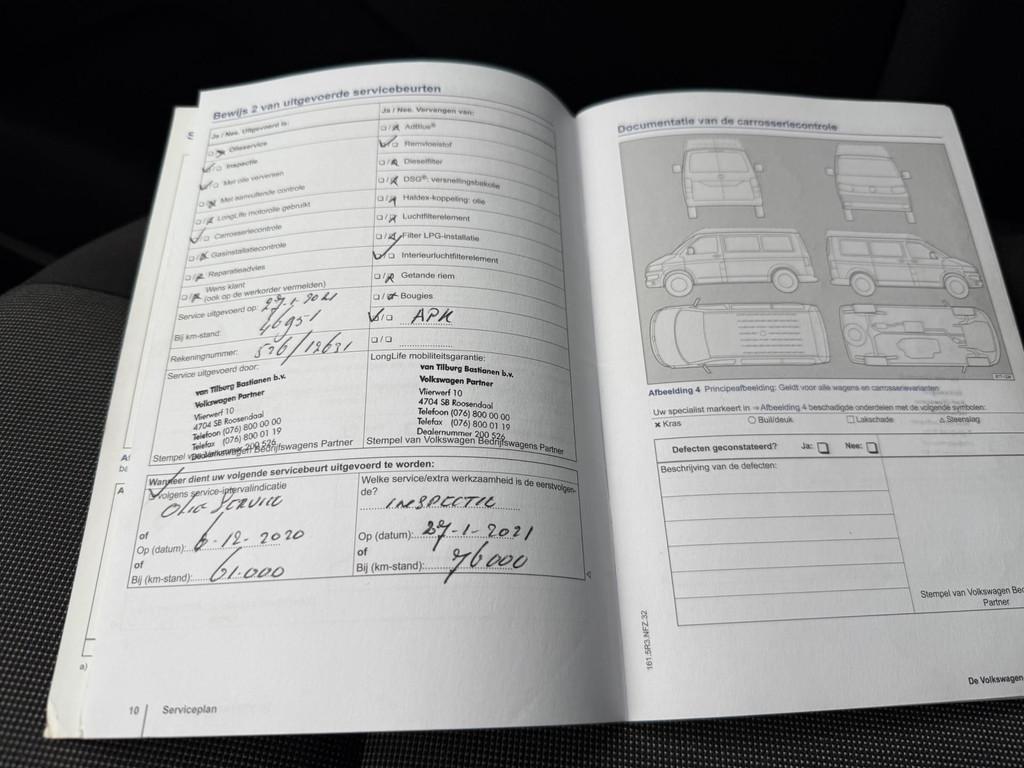 Bewijs 2 van uitgevoerde servicebeurten
Ja / Nee. Uitgevoerd is:
Olieservice
Inspectie
Met olie verversen
Met aanvullende controle
LongLife motorolie gebruikt
Carrosseriecontrole
Gasinstallatiecontrole
Reparatieadvies
Wens klant
(ook op de werkorder vermelden)
Service uitgevoerd op:
Bij km-stand: 46951
Rekeningnummer: 526/12631
Service uitgevoerd door:
van Tilburg Bastianen b.v.
Volkswagen Partner
Vlierwerf 10
4704 SB Roosendaal
Telefoon (076) 800 00 00
Telefax (076) 800 01 19
Dealernummer 200 526
Stempel van Volkswagen Bedrijfswagens Partner
Ja / Nee. Vervangen van:
AdBlue®
Remvloeistof
Dieselfilter
DSG®: versnellingsbakolie
Haldex-koppeling: olie
Luchtfilterelement
Filter LPG-installatie
Interieurluchtfilterelement
Getande riem
Bougies
APK
LongLife mobiliteitsgarantie:
van Tilburg Bastianen b.v.
Volkswagen Partner
Vlierwerf 10
4704 SB Roosendaal
Telefoon (076) 800 00 00
Telefax (076) 800 01 19
Dealernummer 200 526
Stempel van Volkswagen Bedrijfswagens Partner
Wanneer dient uw volgende servicebeurt uitgevoerd te worden:
Volgens service-intervalindicatie
OLIE SERVICE
of
Op (datum): 6-12-2020
of
Bij (km-stand): 61.000
Welke service/extra werkzaamheid is de eerstvolgen-
de?
INSPECTIE
Op (datum): 27-1-2021
of
Bij (km-stand): 76000
10 Serviceplan
a)
Documentatie van de carrosseriecontrole
Afbeelding 4 Principeafbeelding: Geldt voor alle wagens en carrosserievarianten
Uw specialist markeert in ⇒ Afbeelding 4 beschadigde onderdelen met de volgende symbolen:
× Kras ○ Buil/deuk □ Lakschade △ Steenslag
Defecten geconstateerd? Ja: Nee:
Beschrijving van de defecten:
Stempel van Volkswagen Bed
Partner
161.5R3.NFZ.32
De Volkswagen